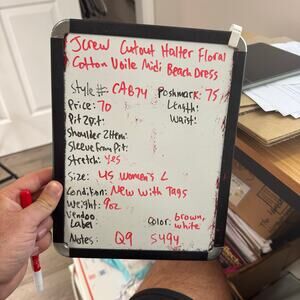 Jcrew Cutout Halter Floral
Cotton Voile Midi Beach Dress
Style #: CAB74 Poshmark: 75
Price: 70 Length:
Pit 2 pit: Waist:
Shoulder 2 Hem:
Sleeve From Pit:
Stretch: yes
Size: US Women's L
Condition: New With Tags
Weight: 9oz
Vendoo Label Color: brown, white
Notes: Q9 5494